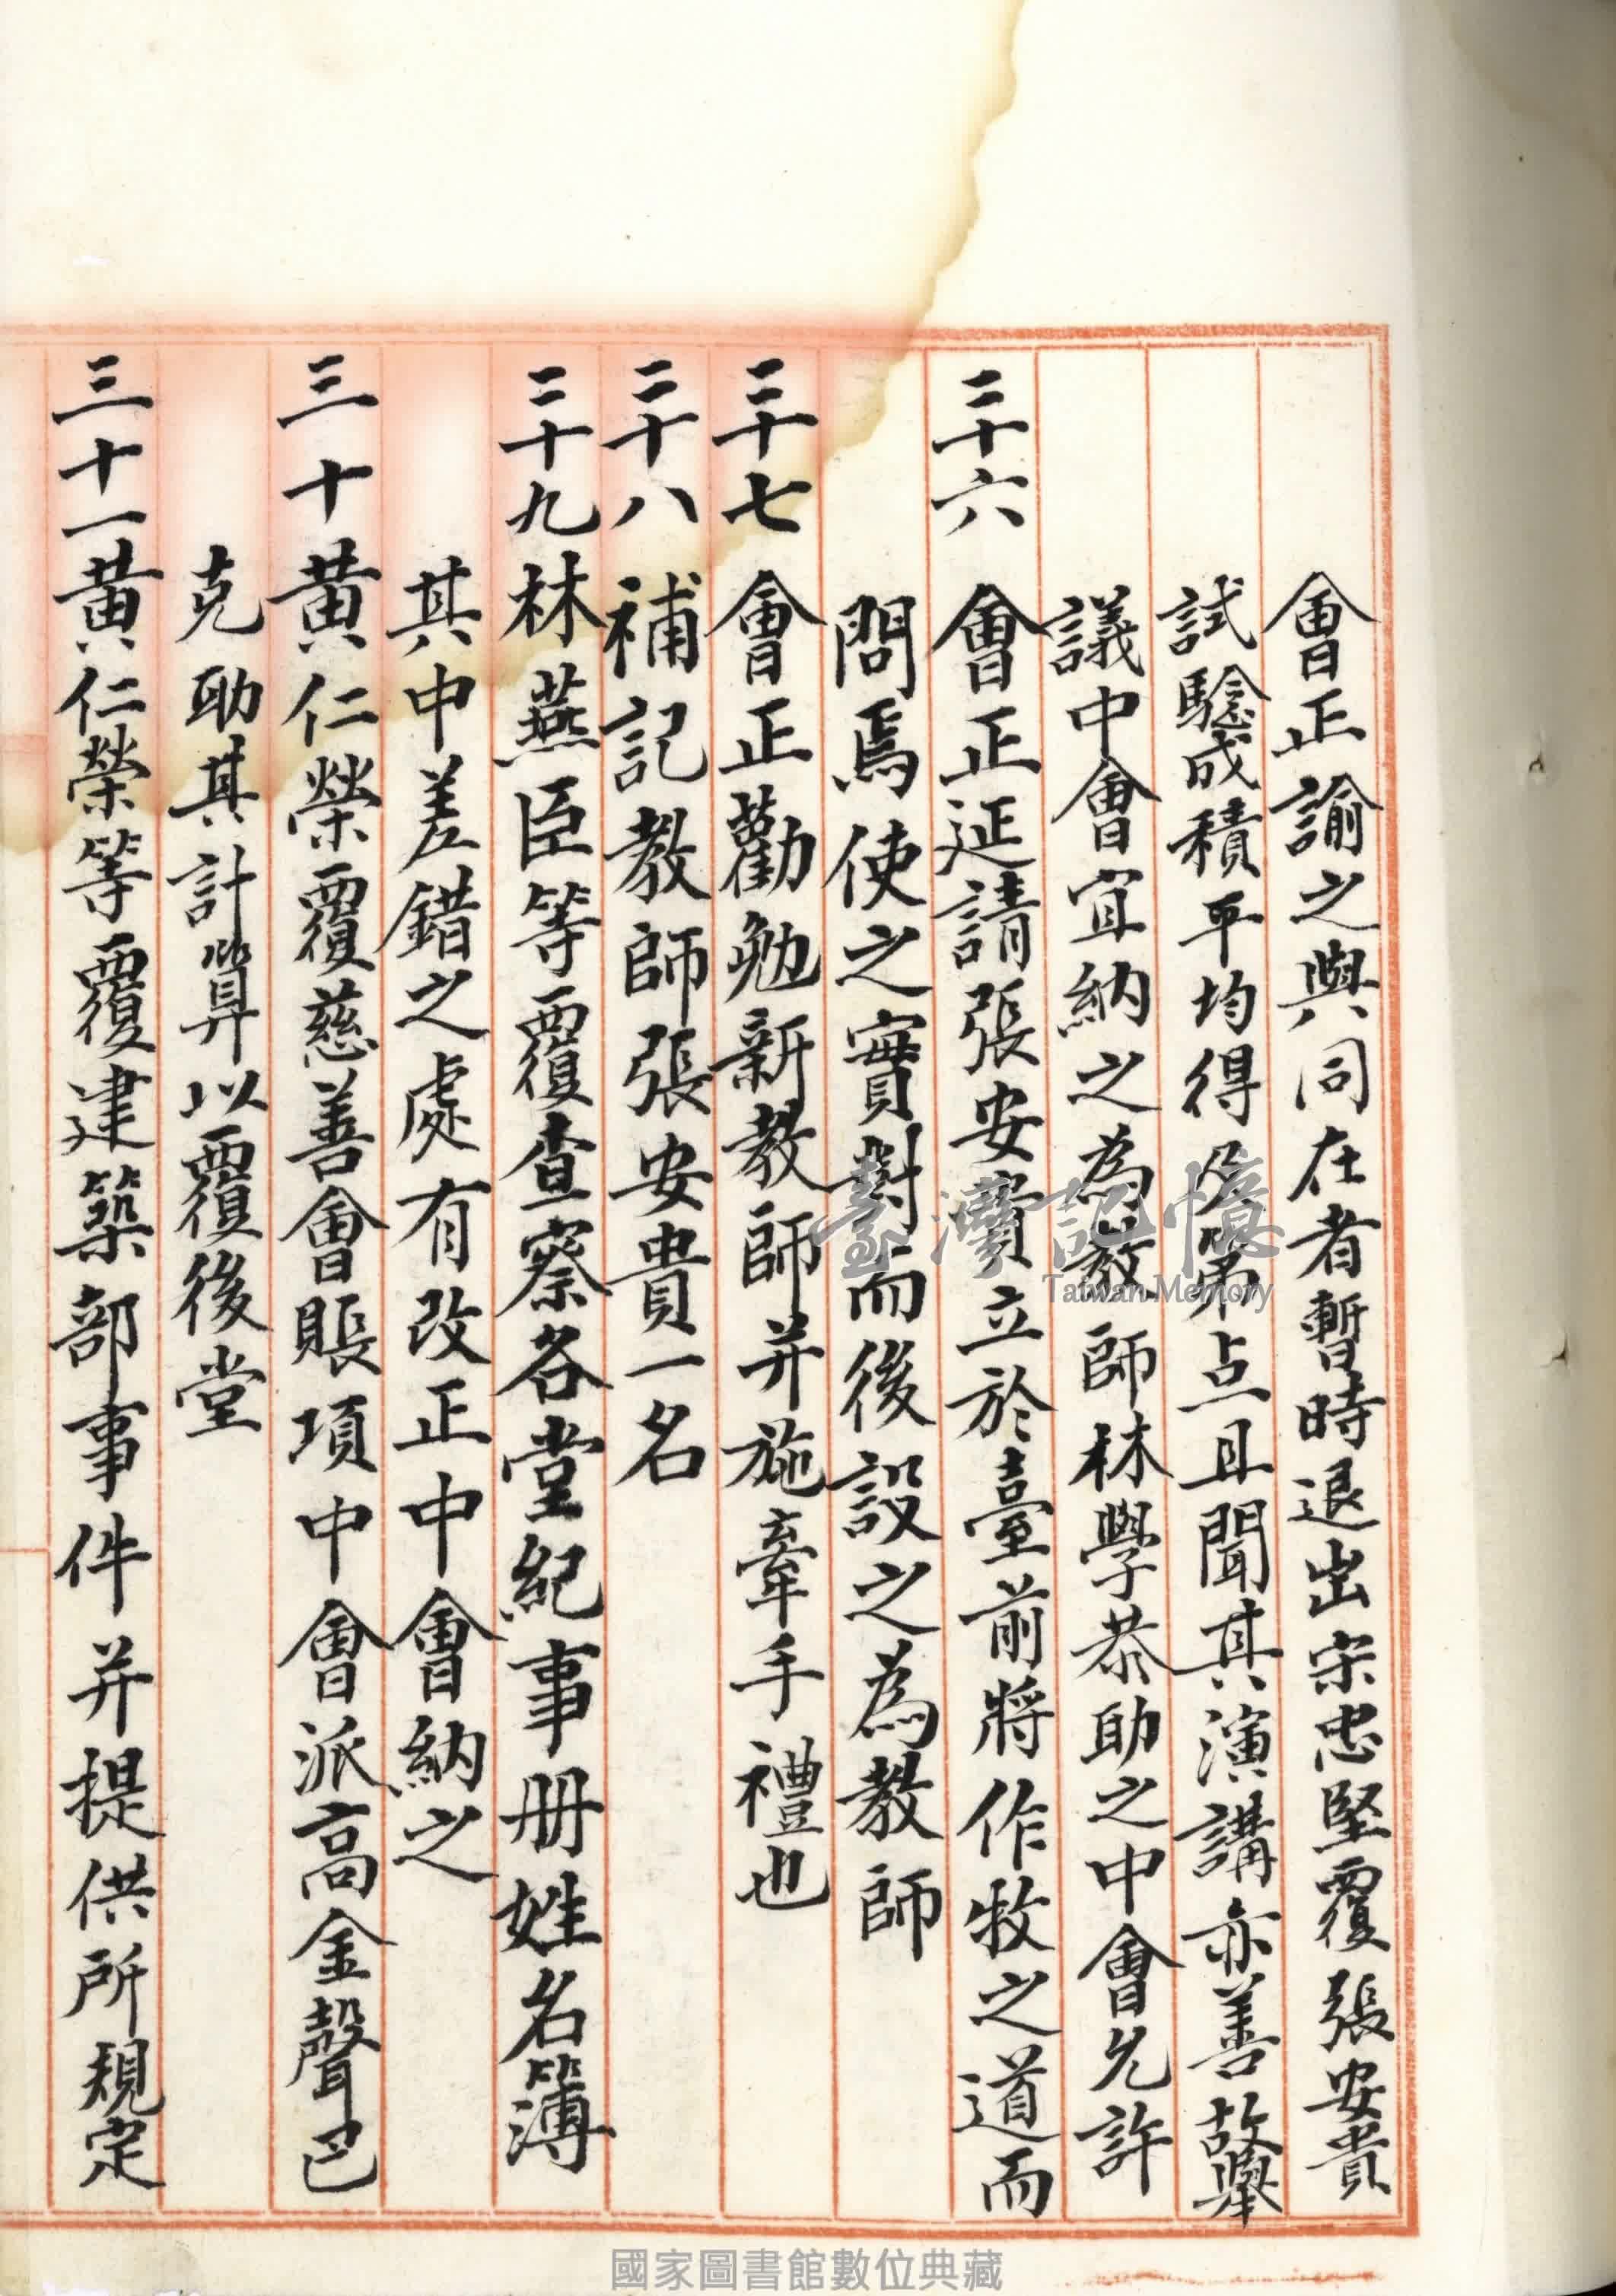 會正諭之與同在者暫時退出宋忠堅覆張安貴
試驗成積平均得及第点且聞其演講亦善故舉
議中會宜納之為教師林學恭助之中會允許
二十六 會正延請張安貴立於臺前將作牧之道而
問焉使之實對而後設之為教師
二十七 會正勸勉新教師并施牽手禮也
二十八 補記教師張安貴一名
二十九 林燕臣等覆查察各堂紀事册姓名簿
其中差錯之處有改正中會納之
三十 黃仁榮覆慈善會賬項中會派高金聲巴
克助其計算以覆後堂
三十一 黃仁榮等覆建築部事件并提供所規定
臺灣記憶
Taiwan Memory
國家圖書館數位典藏